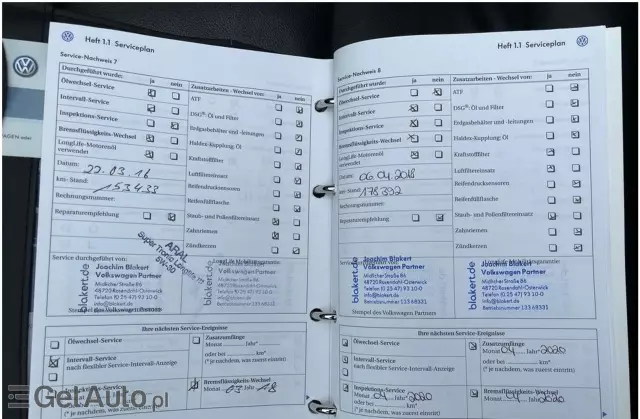 Heft 1.1 Serviceplan
Service-Nachweis 7
Durchgeführt wurde: ja nein
Ölwechsel-Service
Intervall-Service
Inspektions-Service
Bremsflüssigkeits-Wechsel
LongLife-Motorenöl
verwendet
Datum: 22.03.16
km-Stand: 153433
Rechnungsnummer:
Reparaturempfehlung
Zusatzarbeiten - Wechsel von: ja nein
ATF
DSG®: Öl und Filter
Erdgasbehälter und -leitungen
Haldex-Kupplung: Öl
Kraftstofffilter
Luftfiltereinsatz
Reifendrucksensoren
Reifenfüllflasche
Staub- und Pollenfiltereinsatz
Zahnriemen
Zündkerzen
ARAL
Super Tronic Longlife III
5W-30
Service durchgeführt von:
blakert.de
Joachim Blakert
Volkswagen Partner
Midlicher Straße 86
48720 Rosendahl-Osterwick
Telefon (0 25 47) 93 10-0
info@blakert.de
Stempel des Volkswagen Partners
Ihre nächsten Service-Ereignisse
Ölwechsel-Service
Intervall-Service
nach flexibler Service-Intervall-Anzeige
Inspektions-Service
Zusatzumfänge
Monat Jahr*
oder bei km*
(* je nachdem, was zuerst eintritt)
Bremsflüssigkeits-Wechsel
Monat 03 Jahr 18
Heft 1.1 Serviceplan
Service-Nachweis 8
Durchgeführt wurde: ja nein
Ölwechsel-Service
Intervall-Service
Inspektions-Service
Bremsflüssigkeits-Wechsel
LongLife-Motorenöl
verwendet
Datum: 06.04.2018
km-Stand: 178392
Rechnungsnummer:
Reparaturempfehlung
Zusatzarbeiten - Wechsel von: ja nein
ATF
DSG®: Öl und Filter
Erdgasbehälter und -leitungen
Haldex-Kupplung: Öl
Kraftstofffilter
Luftfiltereinsatz
Reifendrucksensoren
Reifenfüllflasche
Staub- und Pollenfiltereinsatz
Zahnriemen
Zündkerzen
blakert.de
Joachim Blakert
Volkswagen Partner
Midlicher Straße 86
48720 Rosendahl-Osterwick
Telefon (0 25 47) 93 10-0
info@blakert.de
Betriebsnummer 133 68331
Stempel des Volkswagen Partners
Ihre nächsten Service-Ereignisse
Ölwechsel-Service
Intervall-Service
nach flexibler Service-Intervall-Anzeige
Inspektions-Service
Monat 04 Jahr 2020
Zusatzumfänge
Monat 04 Jahr 2020
oder bei km*
(* je nachdem, was zuerst eintritt)
Bremsflüssigkeits-Wechsel
Monat 04 Jahr 2020
GetAuto.pl